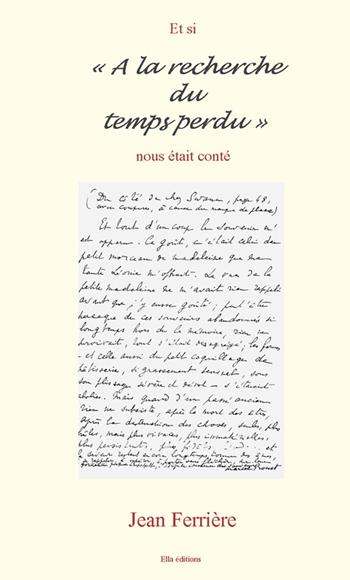 Et si
« A la recherche
du
temps perdu »
nous était conté
(Du côté de chez Swann, page 68,
avec coupures, à cause du manque de place)
Et tout d'un coup le souvenir m'
est apparu. Ce goût, c'était celui du
petit morceau de madeleine que ma
tante Léonie m'offrait. La vue de la
petite madeleine ne m'avait rien rappelé
avant que j'y eusse goûté; peut-être
parce que de ces souvenirs abandonnés si
longtemps hors de la mémoire, rien ne
survivait, tout s'était désagrégé; les formes
- et celle aussi du petit coquillage de
pâtisserie, si grassement sensuel, sous
son plissage sévère et dévot - s'étaient
abolies. Mais quand d'un passé ancien
rien ne subsiste, après la mort des êtres,
après la destruction des choses, seules, plus
frêles, mais plus vivaces, plus immatérielles,
plus persistantes, plus fidèles, l'odeur et
la saveur restent encore longtemps, comme des âmes,
à se rappeler, à attendre, à espérer
Marcel Proust
Jean Ferrière
Ella éditions